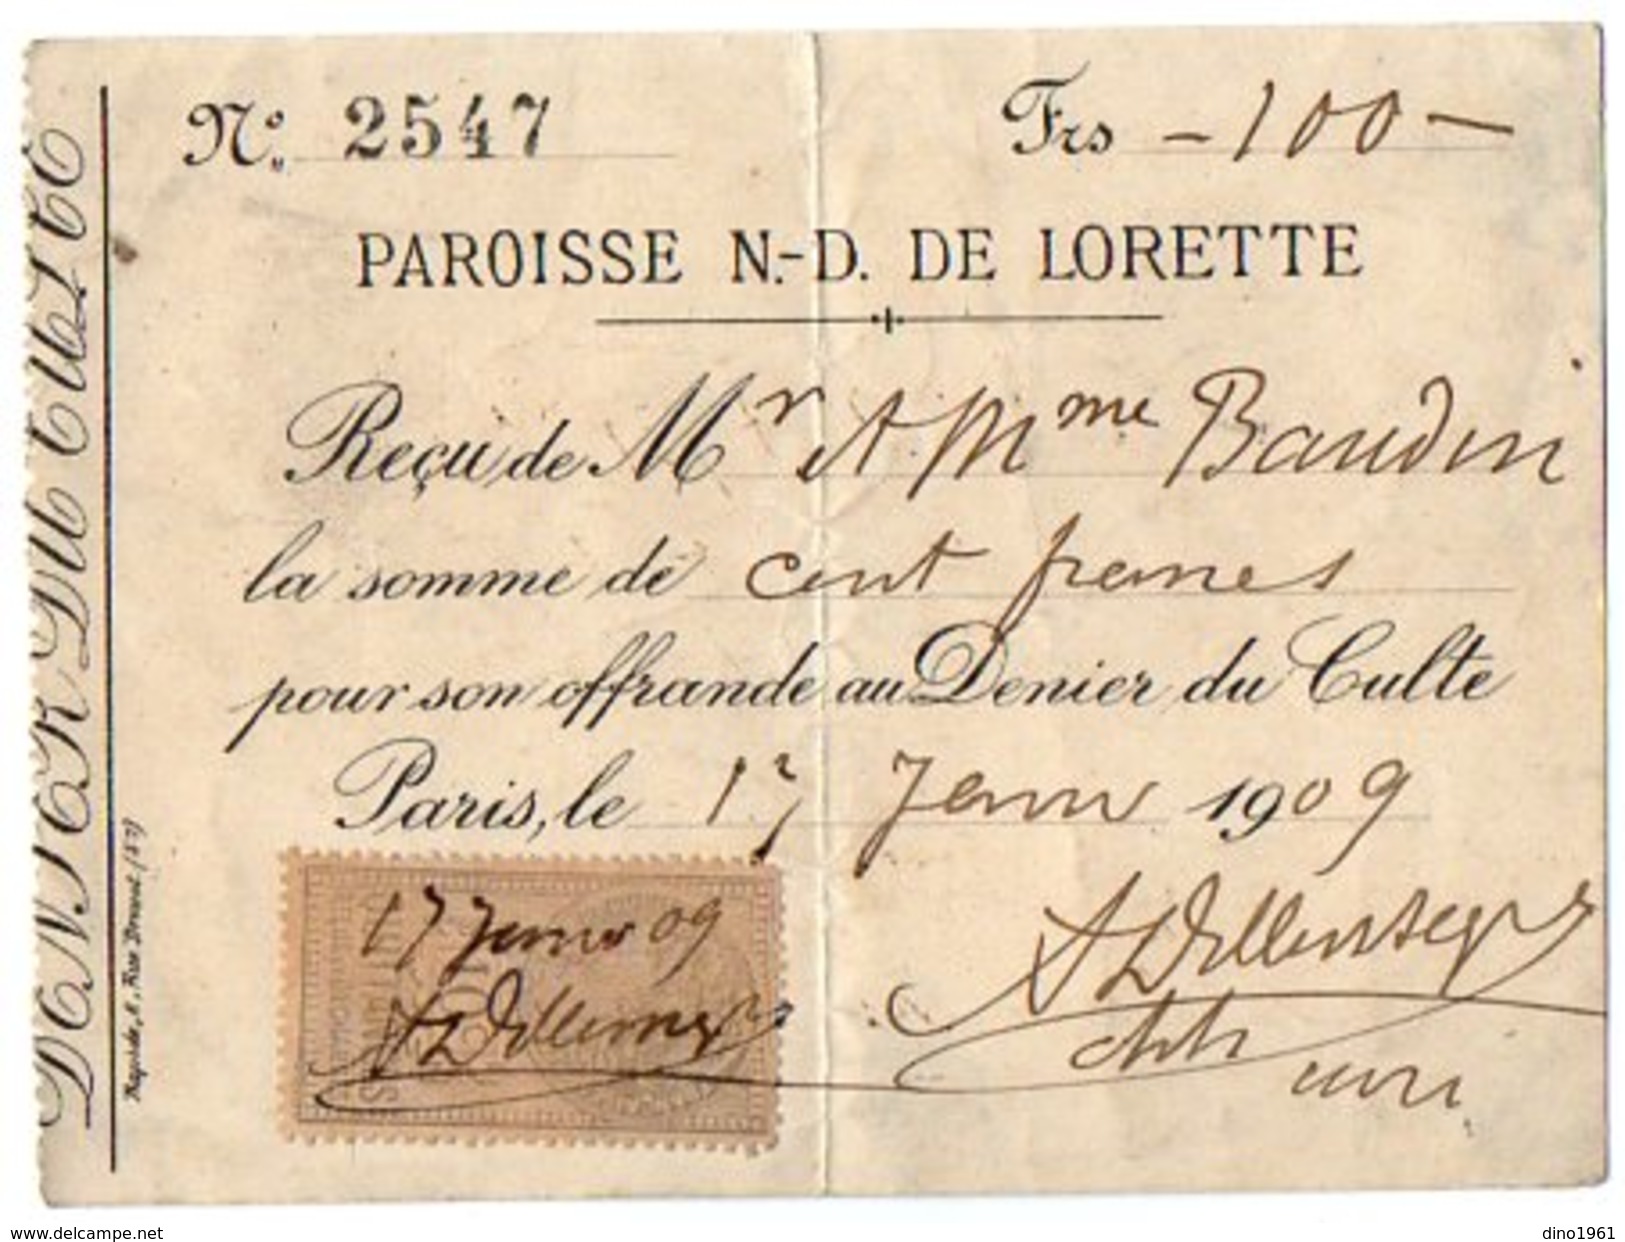 DENIER DU CULTE
N°. 2547
Frs - 100 -
PAROISSE N.-D. DE LORETTE
Reçu de Mr et Mme Baudin
la somme de cent francs
pour son offrande au Denier du Culte
Paris, le 17 Janv 1909
17 Janv 09
www.delcampe.net
dino1961